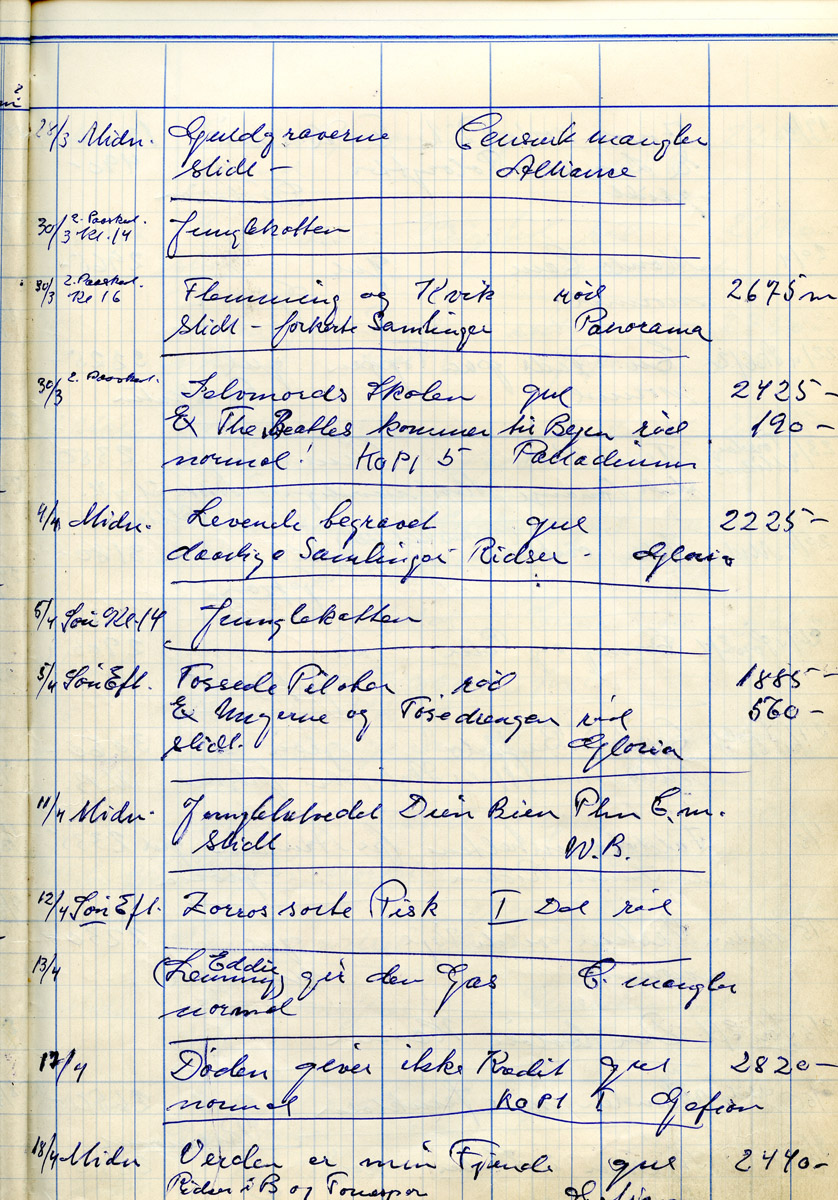 28/3 Midn. Guldgraverne Censurk mangler
Slidt - Alliance
30/3 2. Paaskel. Kl. 14 Junglekatten
30/3 2. Paaskel. Kl 16 Flemming og Kvik rød 2675 m
Slidt - forkerte Samlinger Panorama
30/3 2. Paaskel. Selvmords Skolen gul 2425 -
Ex The Beatles kommer til Byen rød 190 -
normal! KOPI 5 Palladium
4/4 Midn. Levende begravet gul 2225 -
daarlige Samlinger Ridser - Gloria
5/4 Søn Kl. 14 Junglekatten
5/4 Søn Eft. Tossede Piloter rød 1885 -
Ex Ungerne og Tøsedrengen rød 560 -
Slidt. Gloria
11/4 Midn. Junglehelvedet Dien Bien Phu C. m.
Slidt W.B.
12/4 Søn Eft. Zorros sorte Pisk I Del rød
13/4 (Lemmy) Eddie gir den Gas C. mangler
normal
17/4 Døden giver ikke Kredit gul 2820 -
normal KOPI I Gefion
18/4 Midn Verden er min Fjende gul 2440 -
Ridser i B og Tonespor